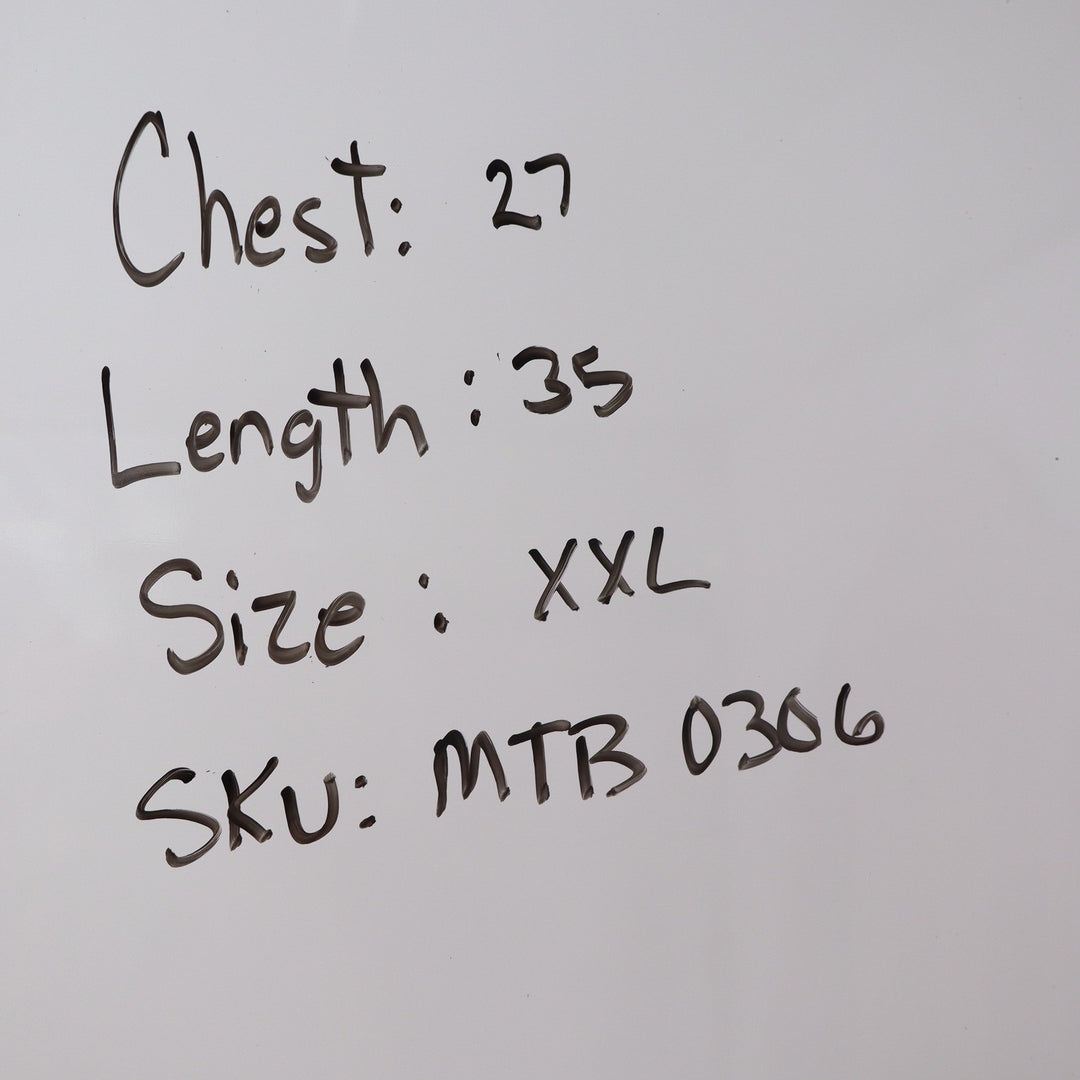 Chest: 27
Length: 35
Size: XXL
SKU: MTB 0306